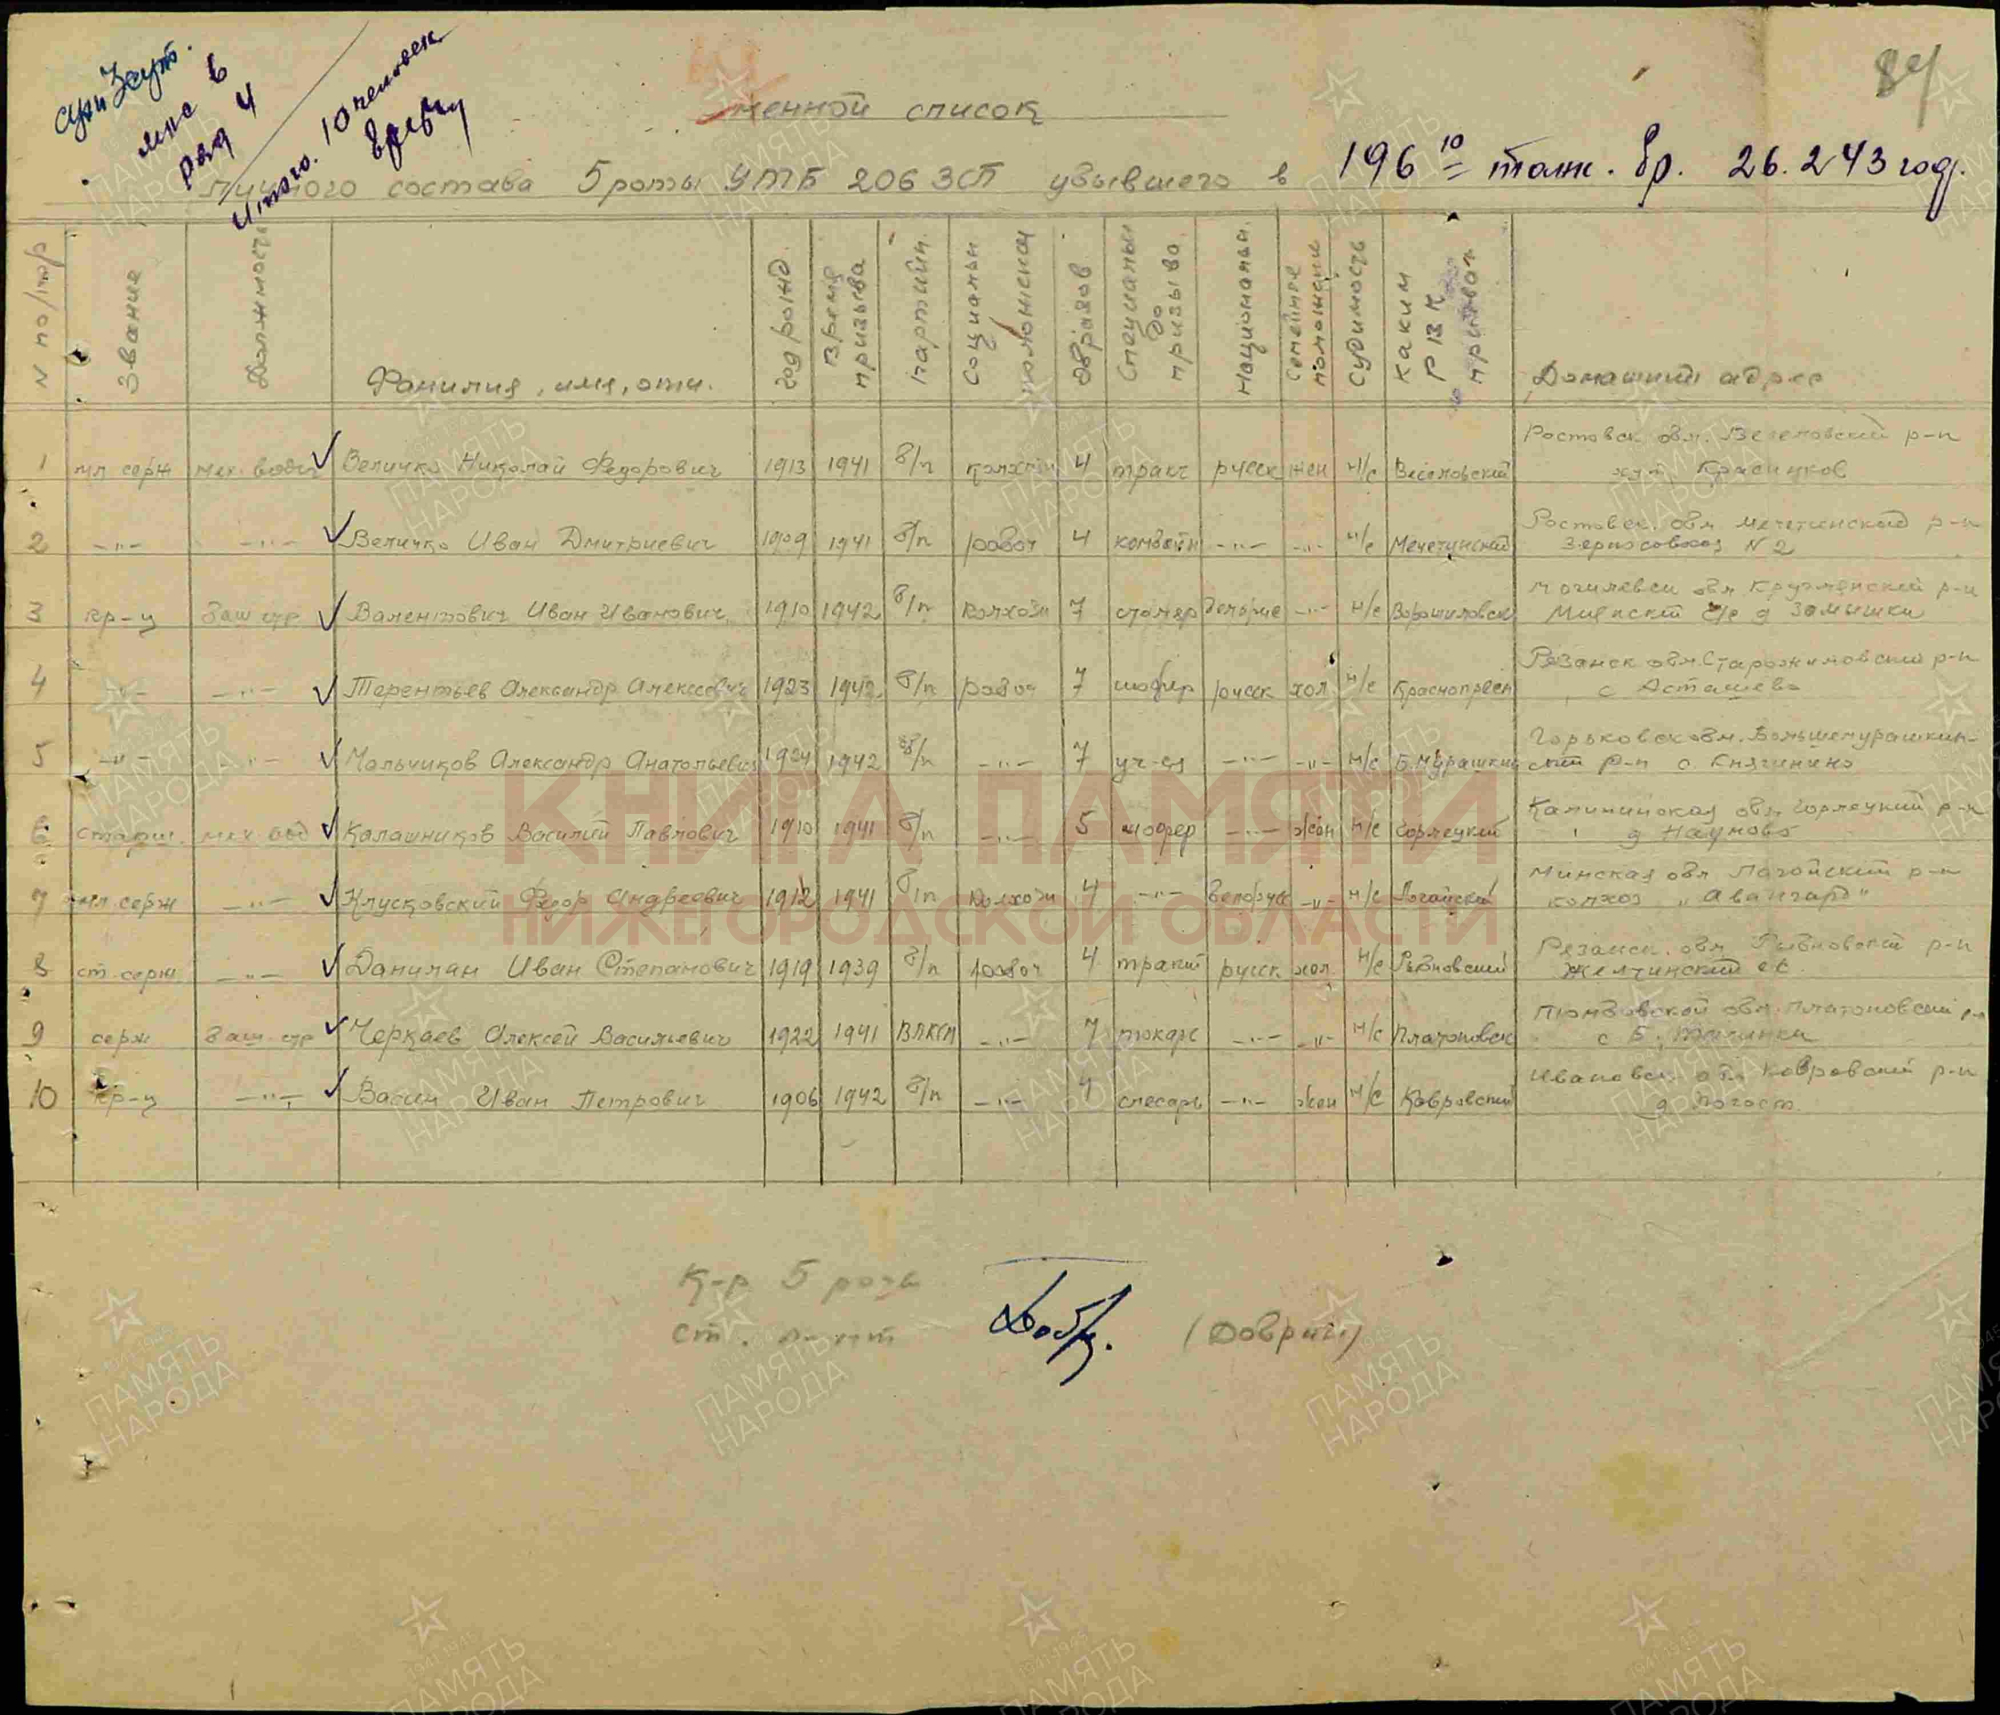 84
мл с 6
ряд 4
Итого. 10 человек
Именной список
личного состава 5 роты УТТБ 206 ЗСП убывшего в 196 ю танк. бр. 26.2.43 год.
N по/пор | Звание | Должность | Фамилия, имя, отч. | год рожд. | Время призыва | партийн. | Социальн положения | Образов | Специальн до призыва | Националън. | Семейное положение | Судимость | Каким РВК призван | Домашний адрес
1 мл серж мех. водит Величко Николай Федорович 1913 1941 б/п колхозн 4 тракт русск жен н/с Веселовский Ростовск обл. Веселовский р-н
хут Красинков
2 -"- -"- Величко Иван Дмитриевич 1909 1941 б/п рабоч 4 комбайн -"- -"- н/с Мечетинский Ростовск. обл Мечетинский р-н
Зерносовхоз N 2
3 кр-ц Баш стр Валентович Иван Иванович 1910 1942 б/п колхозн 7 столяр белорус -"- н/с Ворошиловск Могилевск обл Круглянский р-н
с/с д Замышки
4 -"- -"- Терентьев Александр Алексеевич 1923 1942 б/п рабоч 7 шофер русск хол н/с Краснопресн Рязанск обл. Старожиловский р-н
с Асташево
5 -"- -"- Мальчиков Александр Анатольевич 1924 1942 б/п -"- 7 уч-ся -"- -"- н/с Б. Мурашкин Горьковск обл. Большемурашкин-
ский р-н с. Княгинино
6 старш. мех вод Калашников Василий Павлович 1910 1941 б/п -"- 5 шофер -"- жен н/с Горлецкий Калининская обл Горлецкий р-н
д Наумово
7 мл. серж -"- Клусковский Федор Андреевич 1912 1941 б/п колхозн 4 -"- белорусс -"- н/с Логойский Минская обл Лагойский р-н
колхоз „Авангард"
8 ст. серж. -"- Данилин Иван Степанович 1919 1939 б/п рабоч 4 тракт русск хол. н/с Рыбновский Рязанск. обл Рыбновский р-н
Желчинский сс
9 серж Баш. стр Черкаев Алексей Васильевич 1922 1941 ВЛКСМ -"- 7 токарь -"- -"- н/с Платоновск Тамбовской обл. Платоновский р-н
с Б.
10 кр-ц -"- Васин Иван Петрович 1906 1942 б/п -"- 4 слесарь -"- жен н/с Ковровский Ивановск обл Ковровский р-н
д Погост.
К-р 5 роты
ст. л-нт (Добрин)
КНИГА ПАМЯТИ
НИЖЕГОРОДСКОЙ ОБЛАСТИ
ПАМЯТЬ НАРОДА
1941-1945